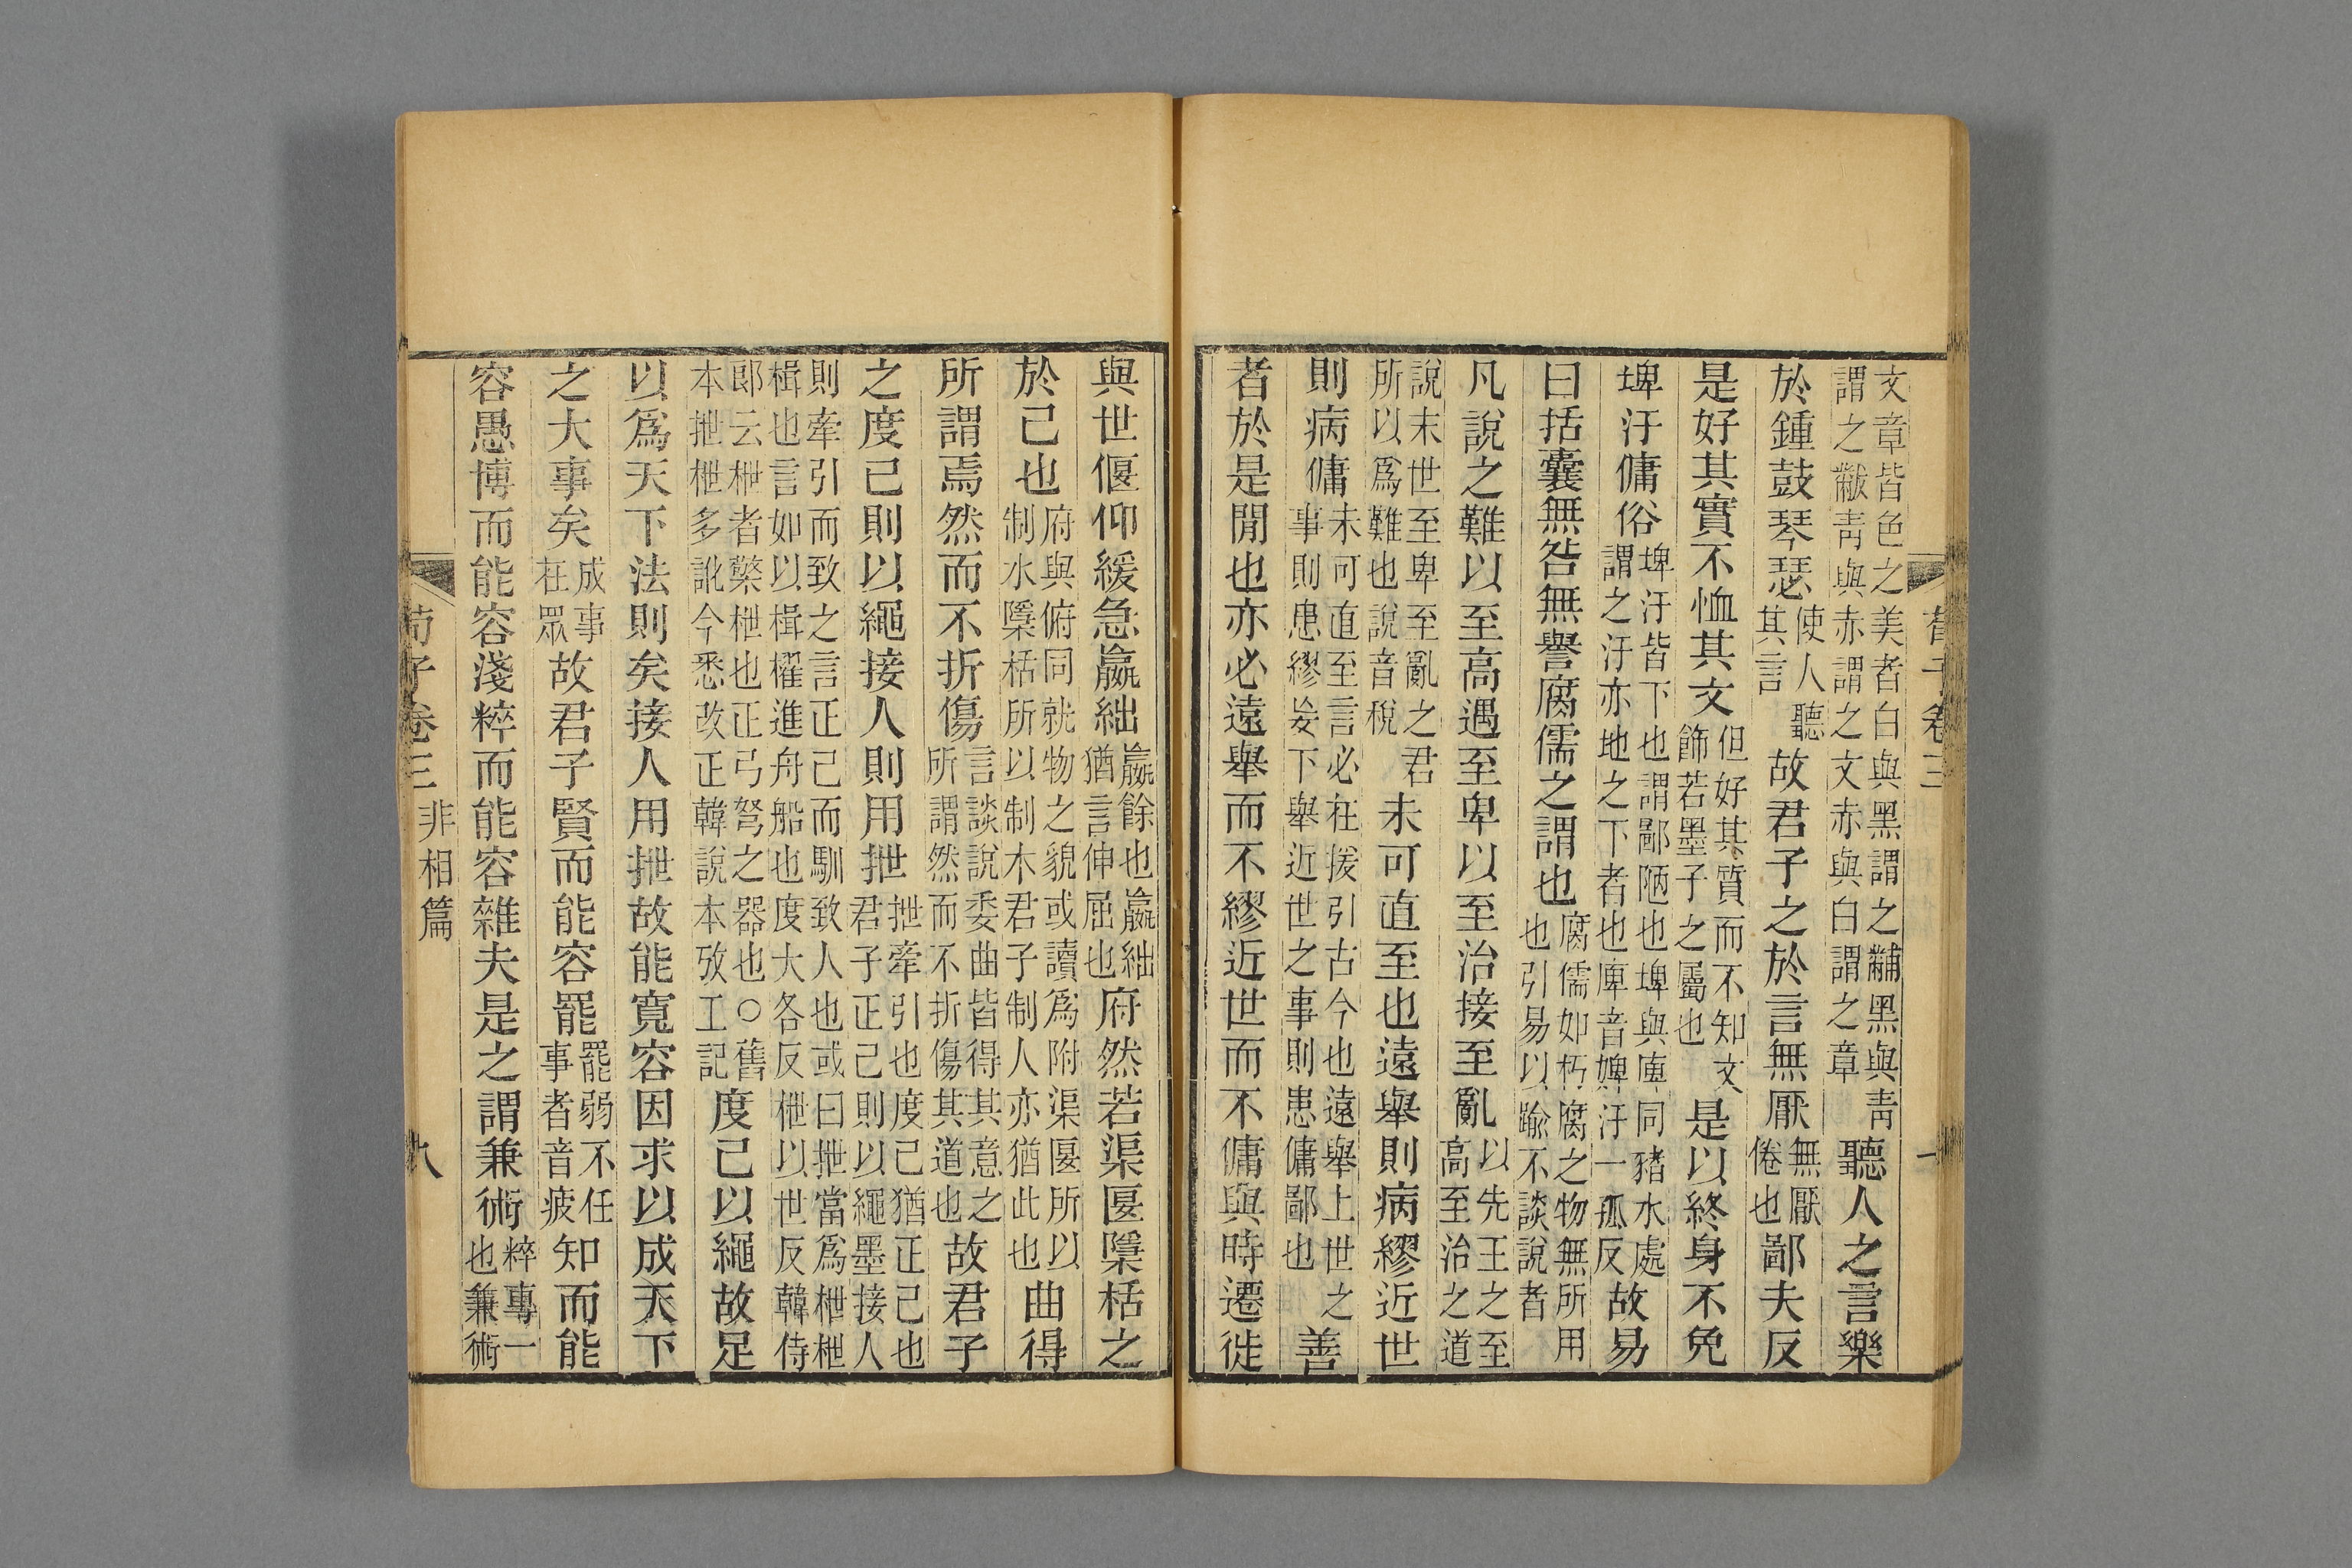 文章皆色之美者白與黑謂之黼黑與青謂之黻青與赤謂之文赤與白謂之章聽人之言樂
於鍾鼓琴瑟使人聽其言故君子之於言無厭無厭倦也鄙夫反
是好其實不恤其文但好其質而不知文飾若墨子之屬也是以終身不免
埤汙傭俗埤汙皆下也謂鄙陋也埤與庳同豬水處謂之汙亦地之下者也庳音婢汙一孤反故易
曰括囊無咎無譽腐儒之謂也腐儒如朽腐之物無所用也引易以踰不談說者
凡說之難以至高遇至卑以至治接至亂以先王之至高至治之道
說末世至卑至亂之君所以爲難也說音稅未可直至也遠舉則病繆近世
則病傭未可直至言必在援引古今也遠舉上世之事則患繆妄下舉近世之事則患傭鄙也善
者於是閒也亦必遠舉而不繆近世而不傭與時遷徙
與世偃仰緩急嬴絀嬴餘也嬴絀猶言伸屈也府然若渠匽檃栝之
於己也府與俯同就物之貌或讀爲附渠匽所以制水檃栝所以制木君子制人亦猶此也曲得
所謂焉然而不折傷言談說委曲皆得其意之所謂然而不折傷其道也故君子
之度己則以繩接人則用抴抴牽引也度己猶正己也君子正己則以繩墨接人
則牽引而致之言正己而馴致人也或曰抴當爲枻枻楫也言如以楫櫂進舟船也度大各反枻以世反韓侍
郎云枻者檠枻也正弓弩之器也○舊本抴枻多訛今悉改正韓說本攷工記度己以繩故足
以爲天下法則矣接人用抴故能寬容因求以成天下
之大事矣成事在眾故君子賢而能容罷罷弱不任事者音疲知而能
容愚博而能容淺粹而能容雜夫是之謂兼術粹專一也兼術
荀子卷三 非相篇 八